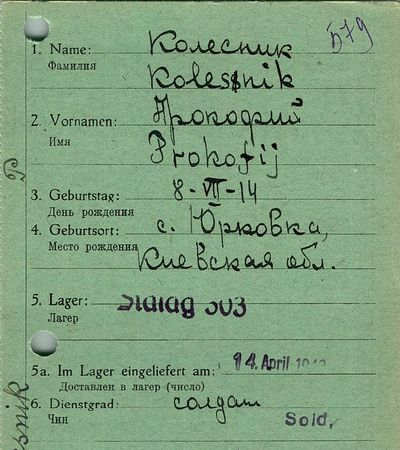 Б79
1. Name: Колесник
Фамилия Kolesnik
2. Vornamen: Прокофий
Имя Prokofij
3. Geburtstag: 8-VII-14
День рождения
4. Geburtsort: с. Юрковка,
Место рождения Киевская обл.
5. Lager: Stalag 303
Лагер
5a. Im Lager eingeliefert am: 14. April
Доставлен в лагер (число)
6. Dienstgrad: солдат
Чин Sold.